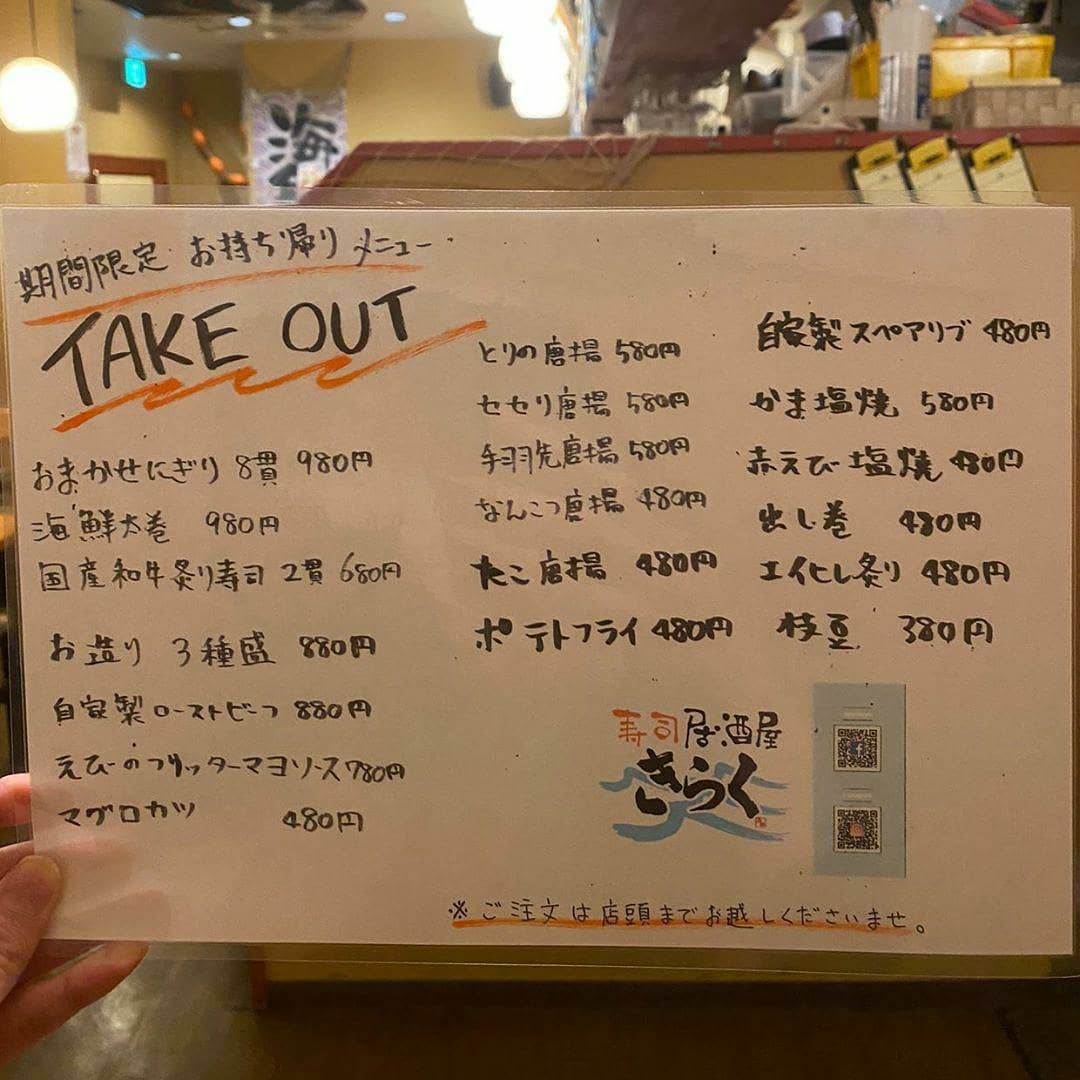 海
期間限定 お持ち帰り メニュー
TAKE OUT
おまかせにぎり 8貫 980円
海鮮太巻 980円
国産和牛炙り寿司 2貫 680円
お造り 3種盛 880円
自家製ローストビーフ 880円
えびのフリッターマヨソース 780円
マグロカツ 480円
とりの唐揚 580円
セセリ唐揚 580円
手羽先唐揚 580円
なんこつ唐揚 480円
たこ唐揚 480円
ポテトフライ 480円
自家製スペアリブ 480円
かま塩焼 580円
赤えび塩焼 480円
出し巻 480円
エイヒレ炙り 480円
枝豆 380円
寿司居酒屋
きらく
※ご注文は店頭までお越しくださいませ。